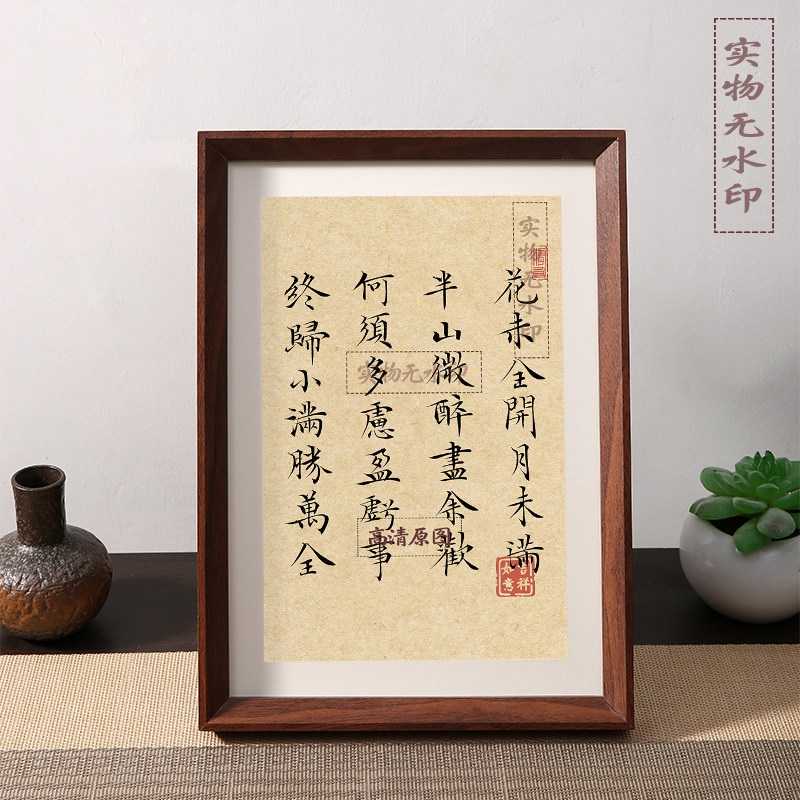 花未全開月未滿
半山微醉盡余歡
何須多慮盈虧事
終歸小滿勝萬全
吉祥如意
实物无水印
实物无水印
实物无水印
高清原图